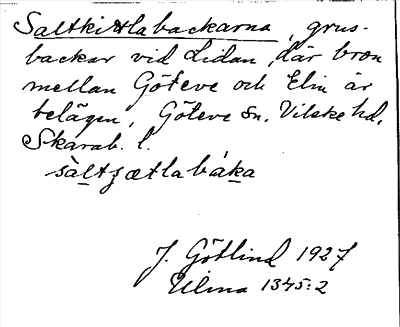 Saltkittlabackarna, grus-
backar vid Lidan, där bron
mellan Göteve och Elin är
belägen, Göteve sn, Vilske hd,
Skarab. l.
J. Götlind 1927
Ulma 1345:2